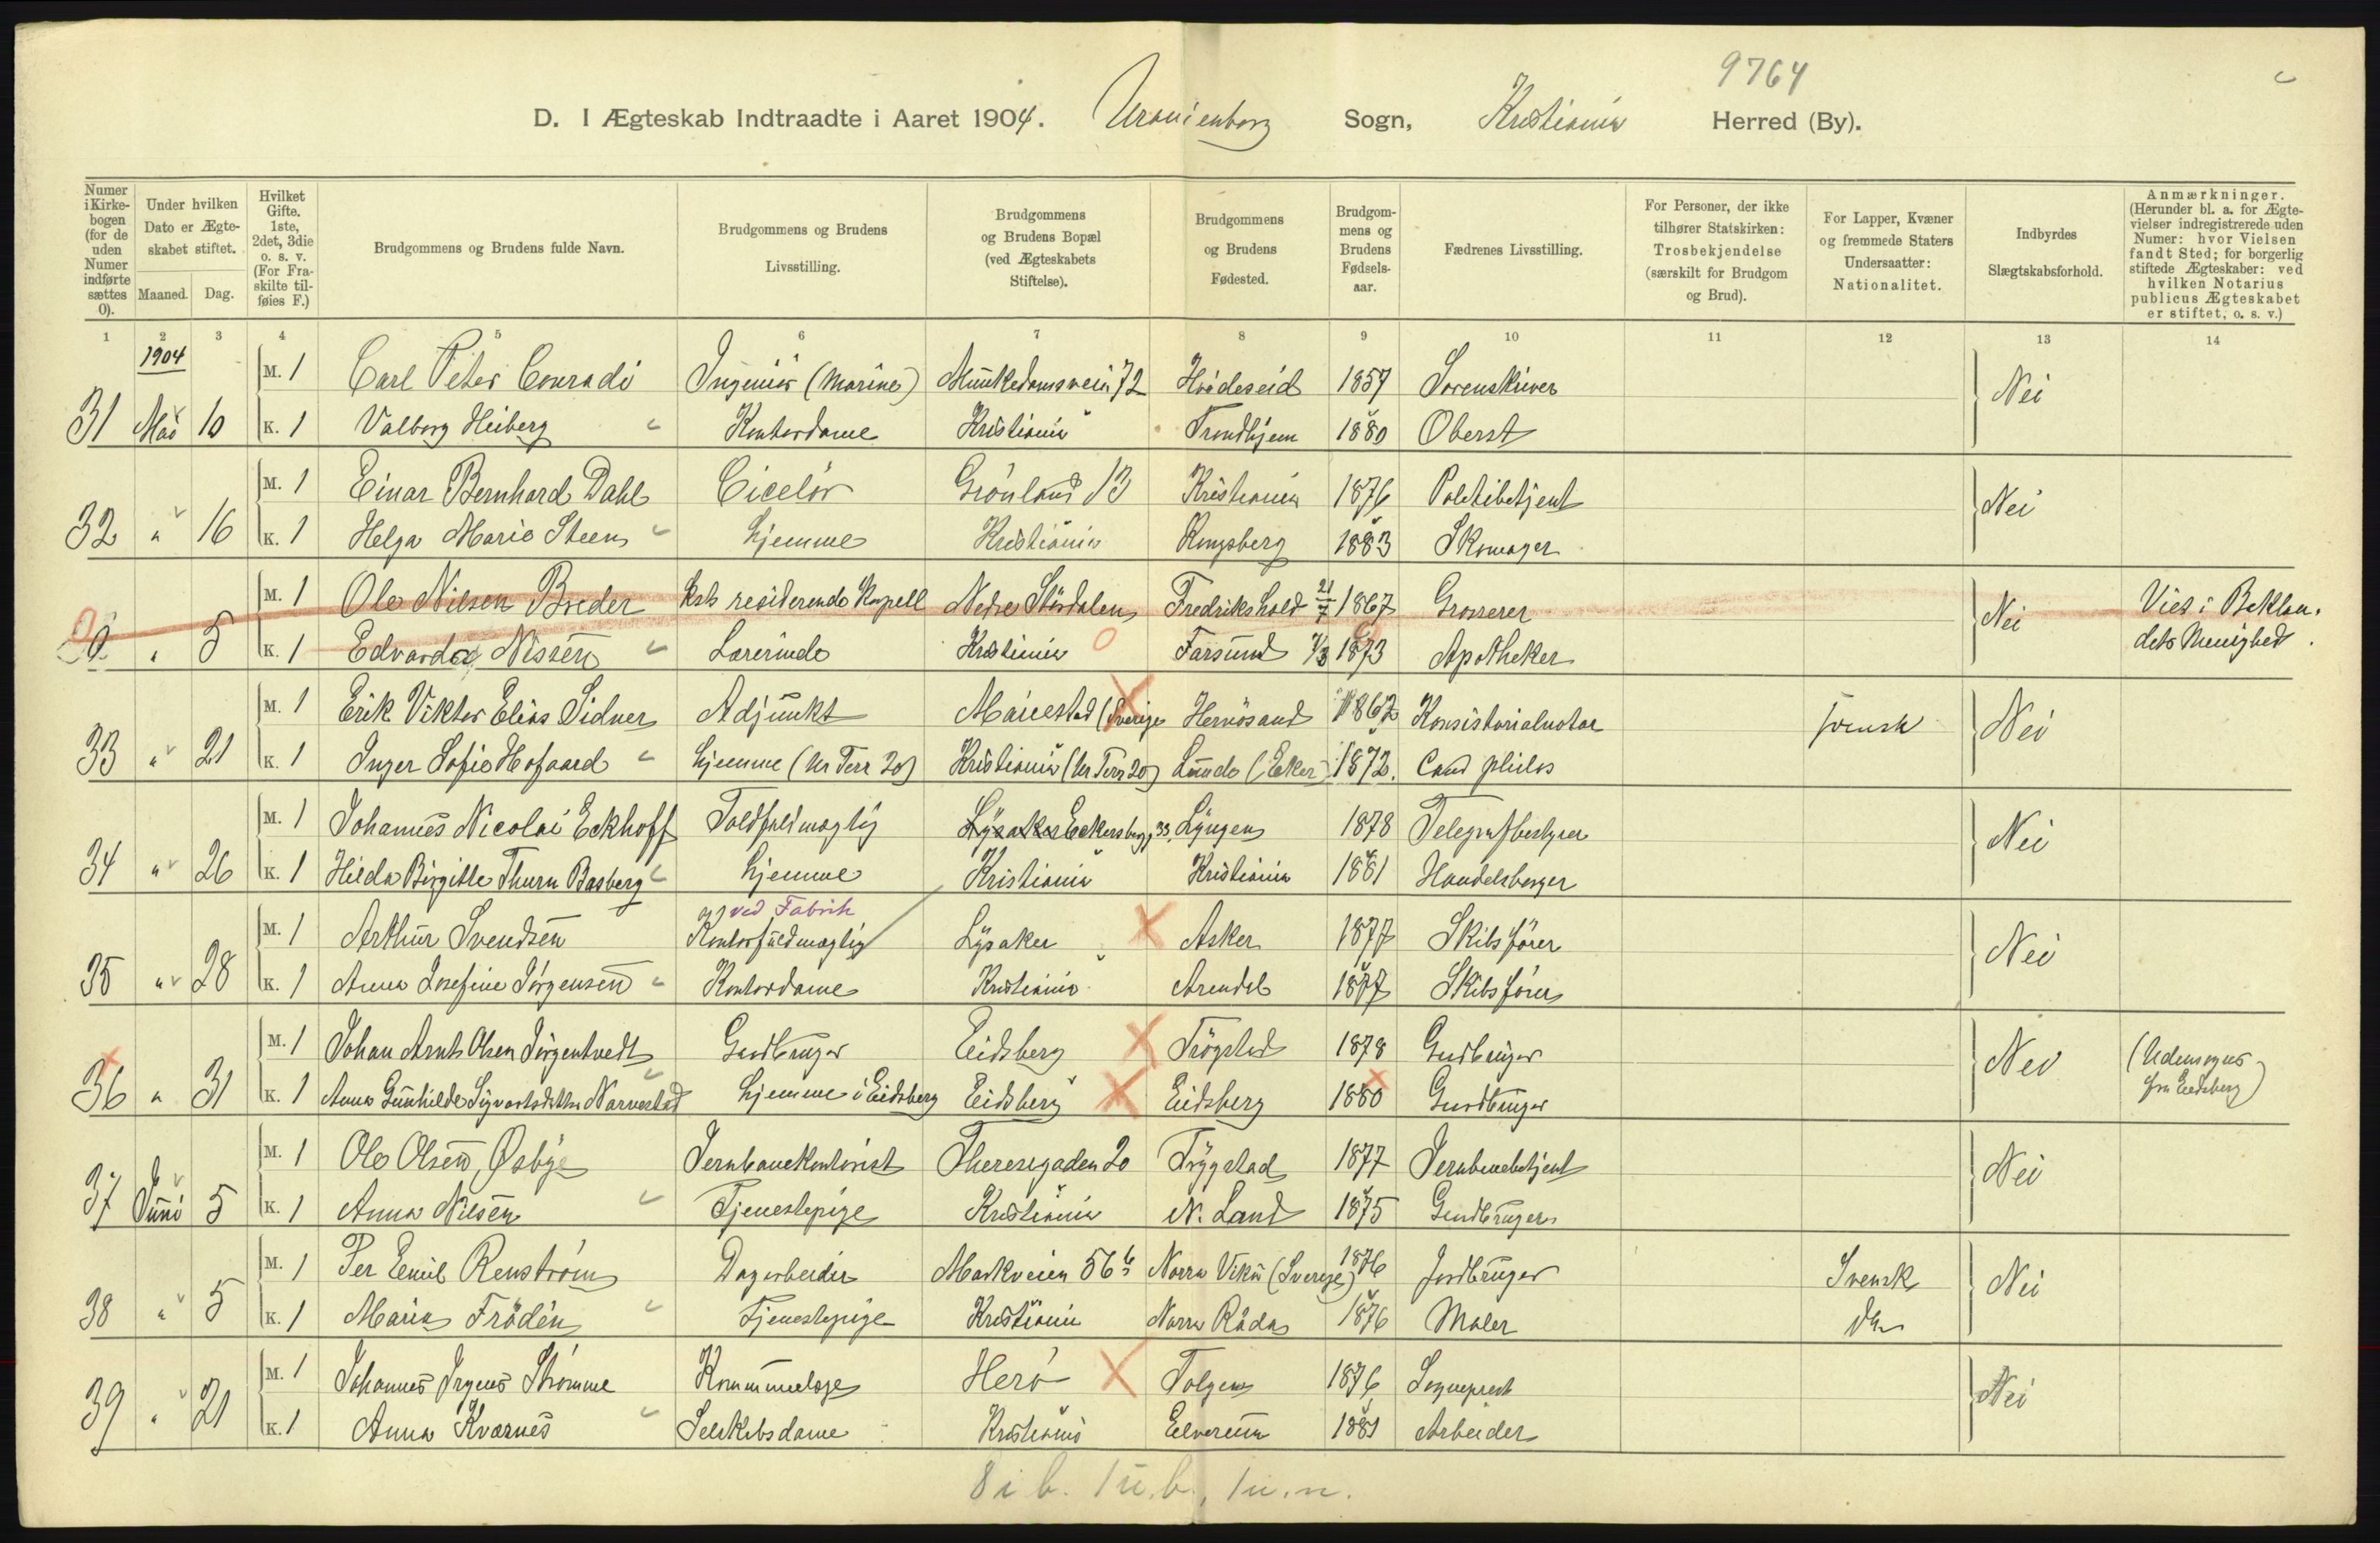 9764
D. I Ægteskab Indtraadte i Aaret 1904. Uranienborg Sogn, Kristiania Herred (By).
Numer i Kirkebogen (for de uden Numer indførte sættes 0).
Under hvilken Dato er Ægteskabet stiftet. Maaned. Dag.
Hvilket Gifte. 1ste, 2det, 3die o. s. v. (For Fraskilte tilføies F.)
Brudgommens og Brudens fulde Navn.
Brudgommens og Brudens Livsstilling.
Brudgommens og Brudens Bopæl (ved Ægteskabets Stiftelse).
Brudgommens og Brudens Fødested.
Brudgommens og Brudens Fødselsaar.
Fædrenes Livsstilling.
For Personer, der ikke tilhører Statskirken: Trosbekjendelse (særskilt for Brudgom og Brud).
For Lapper, Kvæner og fremmede Staters Undersaatter: Nationalitet.
Indbyrdes Slægtskabsforhold.
Anmærkninger. (Herunder bl. a. for Ægtevielser indregistrerede uden Numer: hvor Vielsen fandt Sted; for borgerlig stiftede Ægteskaber: ved hvilken Notarius publicus Ægteskabet er stiftet, o. s. v.)
1 2 3 4 5 6 7 8 9 10 11 12 13 14
1904
M. 1 Carl Peter Conradi Ingeniør (Marine) Munkedamsveien 72 Hvideseid 1857 Sorenskriver Nei
31 Mai 10 K. 1 Valborg Heiberg Kontordame Kristiania Trondhjem 1880 Oberst
M. 1 Einar Bernhard Dahl Ciselör Grönland 13 Kristiania 1876 Politibetjent Nei
32 " 16 K. 1 Helga Marie Steen hjemme Kristiania Kongsberg 1883 Skomager
M. 1 Ole Nilsen Breder residerende Kapell Nedre Stördalen Fredrikshald 21/7 1867 Grosserer Nei Viet i Bekkelau.
0 " 5 K. 1 Edvarda Nissen Lærerinde Kristiania Farsund 1/3 1873 Apotheker dets Menighed.
M. 1 Erik Viktor Elias Sidner Adjunkt Mariestad (Sverige Hernösand 1862 Konsistorialnotar svensk Nei
33 " 21 K. 1 Inger Sofie Hofgaard hjemme (Ur Terr 20) Kristiania (Ur Terr 20) Lunde (Eker) 1872. Cand philos
M. 1 Johannes Nicolai Eckhoff Toldfuldmægtig Lysaker Eckersbergg 33. Lyngen 1878 Telegrafbestyrer Nei
34 " 26 K. 1 Hilda Birgitte Thurn Basberg hjemme Kristiania Kristiania 1881 Handelsborger
ved Fabrik
M. 1 Arthur Svendsen Kontorfuldmægtig Lysaker Asker 1877 Skibsförer Nei
35 " 28 K. 1 Anna Josefine Jörgensen Kontordame Kristiania Arendal 1877 Skibsförer
M. 1 Johan Arnt Olsen Jörgentvedt Gaardbruger Eidsberg Trögstad 1878 Gaardbruger Nei (Udensogns
36 " 31 K. 1 Anna Gunhilde Sigvartsdatter Narvestad hjemme i Eidsberg Eidsberg Eidsberg 1880 Gaardbruger fra Eidsberg)
M. 1 Ole Olsen Øsbye Jernbanekontorist Theresegaden 20 Tryggstad 1877 Jernbanebetjent Nei
37 Juni 5 K. 1 Anna Nilsen Tjenestepige Kristiania N. Land 1875 Gaardbruger
M. 1 Per Emil Renström Dagarbeider Markveien 56 b Norra Vika (Sverige) 1876 Jordbruger Svensk Nei
38 " 5 K. 1 Maria Frödén Tjenestepige Kristiania Norra Råda 1876 Maler Do
M. 1 Johannes Irgens Strömme Kommunelæge Herö Tolgen 1876 Sogneprest Nei
39 " 21 K. 1 Anna Kværnes Selskabsdame Kristiania Elverum 1881 Arbeider
8 i b. 1 u.b., 1 u.n.